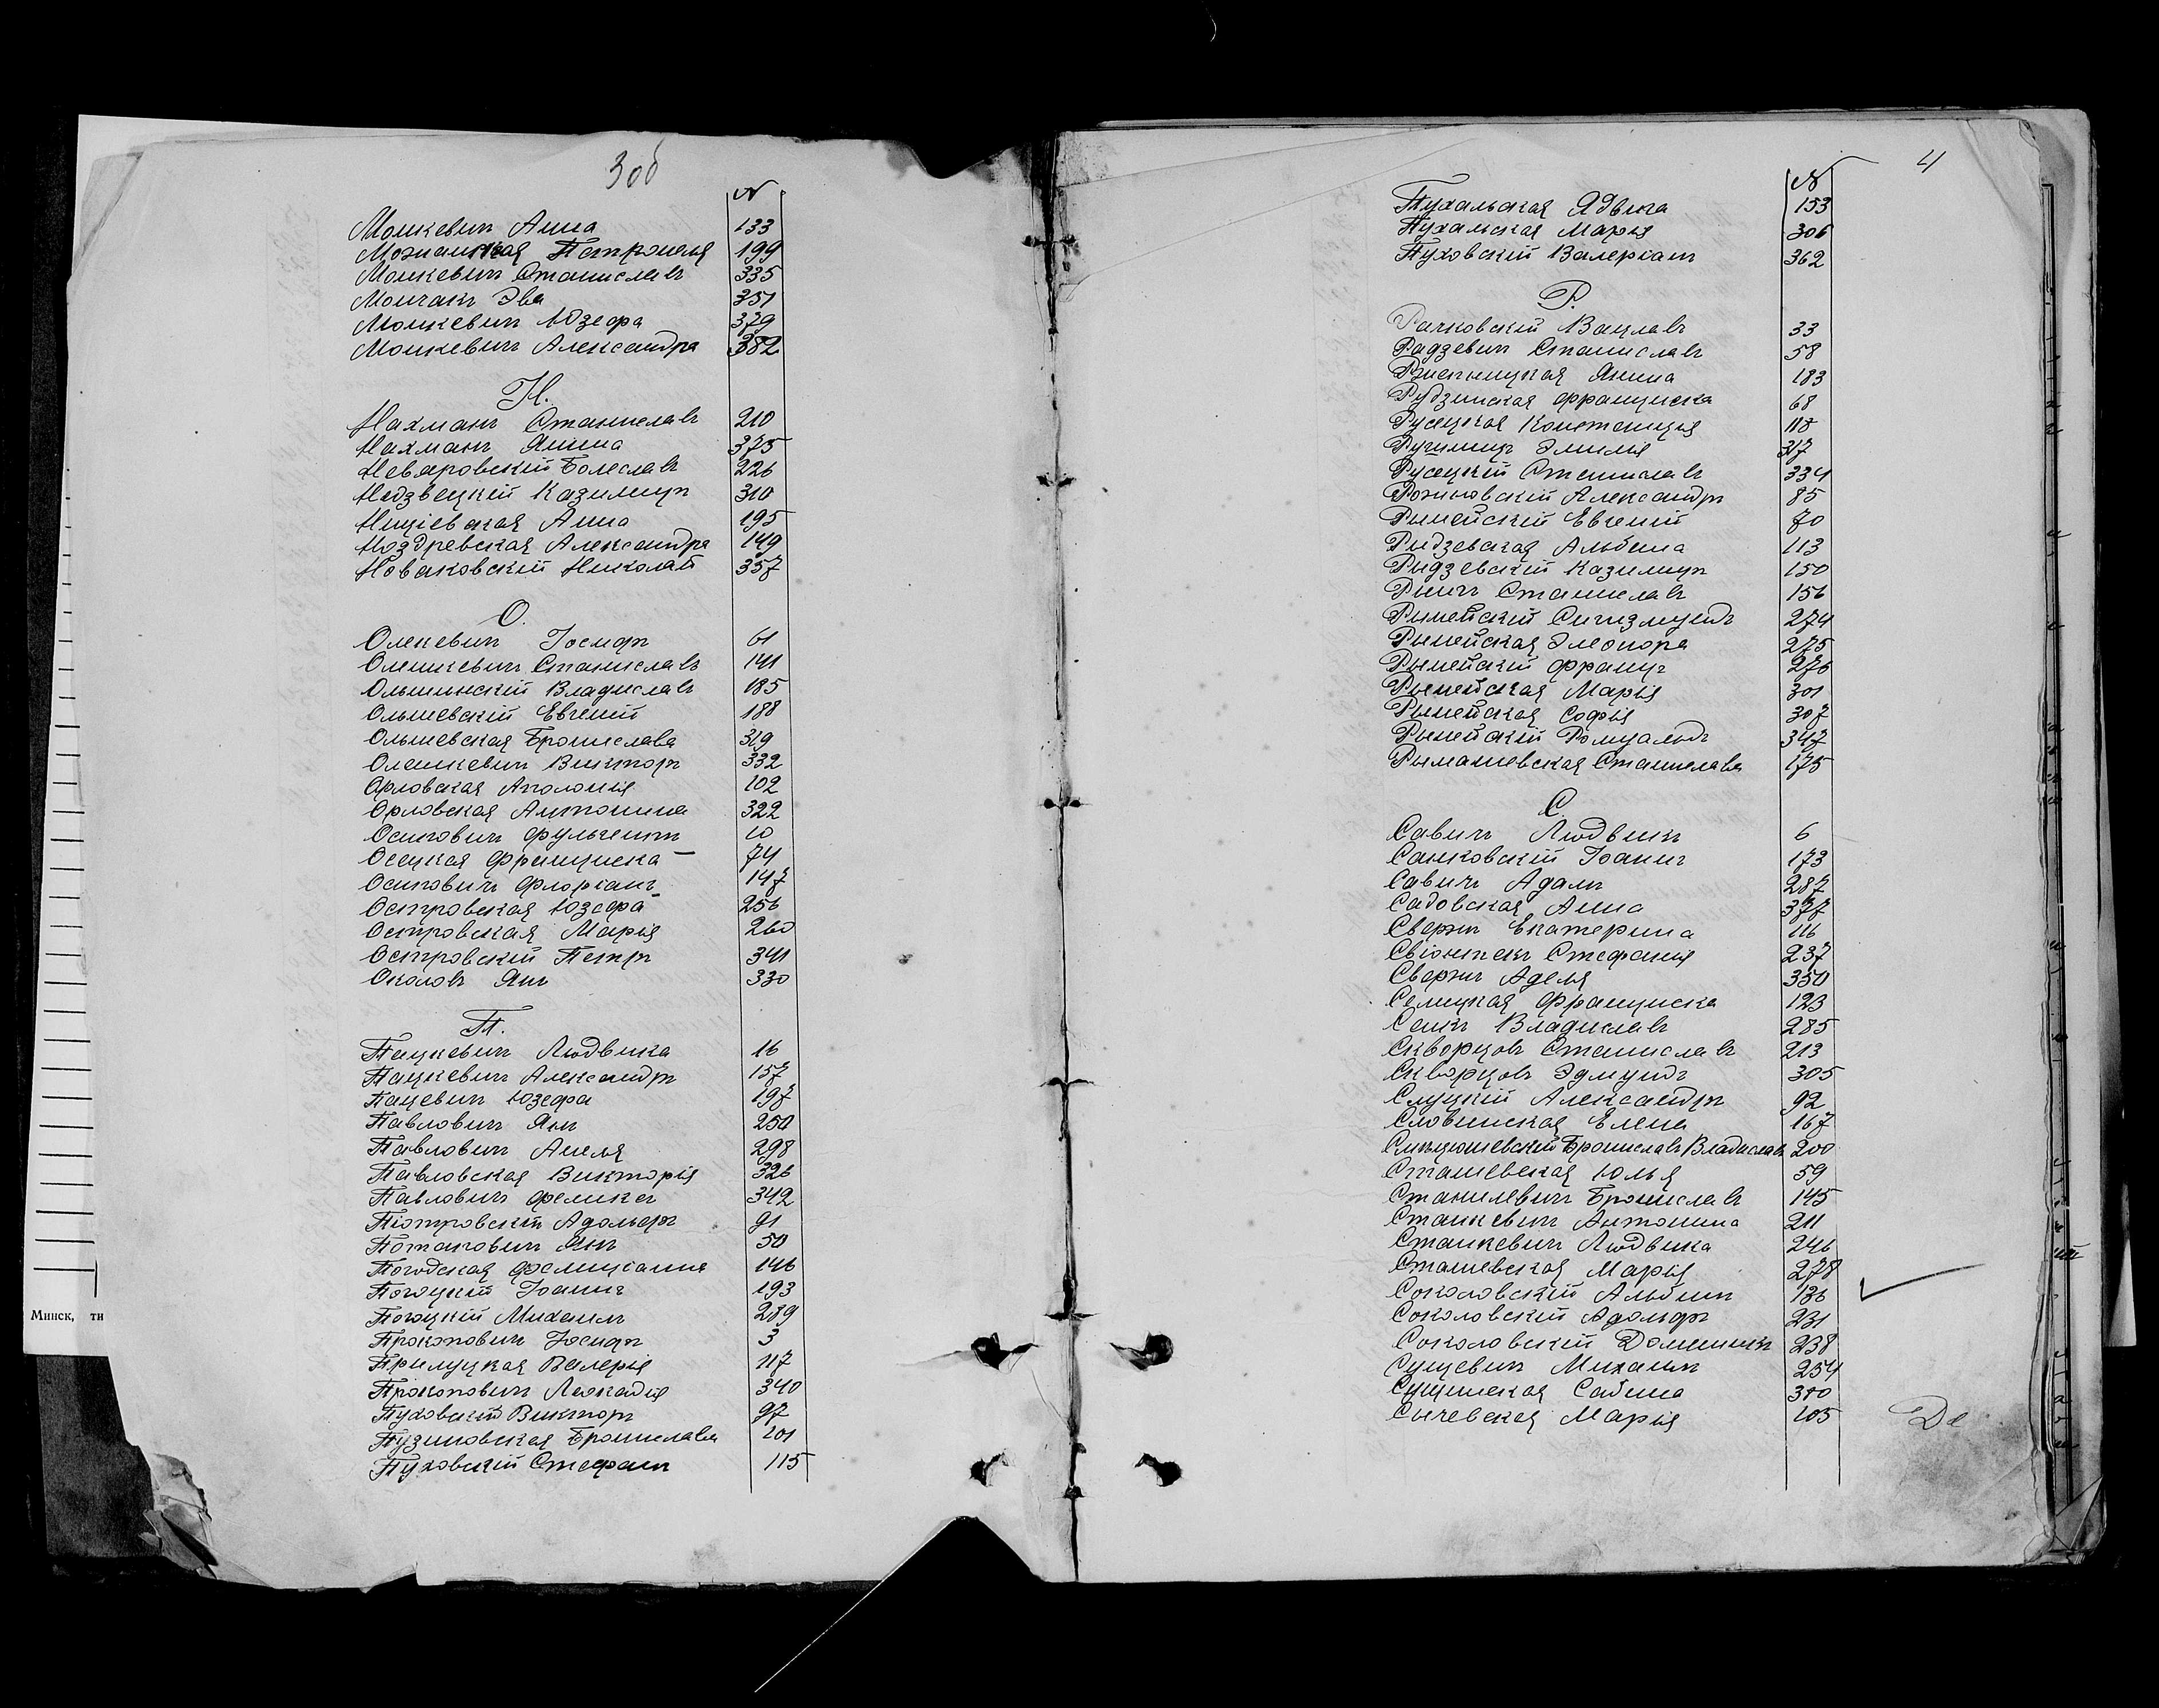 3об
N
Мошкевич Анна 133
Можанская Петронеля 199
Мошкевич Станиславъ 335
Мончакъ Эва 351
Мошкевич Юзефа 379
Мошкевичъ Александра 382
Н.
Нахманъ Станиславъ 210
Нахманъ Янина 375
Неваровскій Болеславъ 226
Недзвецкій Казимиръ 310
Ницѣевская Анна 195
Ноздревская Александра 149
Новаковскій Николай 357
О.
Олекевич Іосифъ 61
Олешкевичъ Станиславъ 141
Ольшинскій Владиславъ 185
Ольшевскій Евгеній 188
Ольшевская Бронислава 319
Олешкевич Викторъ 332
Орловская Аполонія 102
Орловская Антонина 322
Осиповичъ Фульгентъ 10
Осецкая Франциска 74
Осиповичъ Флоріанъ 147
Островская Юзефа 256
Островская Марія 260
Островскій Петръ 341
Околовъ Янъ 330
П.
Пацкевичъ Людвика 16
Пацкевичъ Александръ 157
Пацевич Юзефа 197
Павловичъ Янъ 250
Павловичъ Анеля 298
Павловская Викторія 326
Павловичъ Феликсъ 342
Піотровскій Адольфъ 91
Потаповичъ Янъ 50
Погодская Фелиціанна 146
Погоцкій Іоаннъ 193
Погоцкій Михаилъ 289
Прокоповичъ Іосифъ 3
Прилуцкая Валерія 117
Прокоповичъ Леокадія 340
Пуховскій Викторъ 97
Пузиновская Бронислава 201
Пуховскій Стефанъ 115
4
N
Пухальская Ядвига 153
Пухальская Марія 306
Пуховскій Валеріанъ 362
Р.
Рачковскій Вацлавъ 33
Радзевич Станиславъ 58
Янина 183
Рудзинская Франциска 68
Русецкая Констанція 118
Эмилія 317
Русецкій Станиславъ 334
Рожновскій Александръ 85
Рымейскій Евгеній 70
Рыдзевская Альбина 113
Рыдзевскій Казимиръ 150
Станиславъ 156
Рымейскій Сигизмундъ 274
Рымейская Элеонора 275
Рымейскій Францъ 276
Рымейская Марія 301
Рымейская Софія 307
Рымейскій Ромуальдъ 347
Рымашевская Станислава 175
С.
Савичъ Людвикъ 6
Санковскій Іоаннъ 173
Савичъ Адамъ 287
Садовская Анна 377
Сваржъ Екатерина 116
Свіонтекъ Стефанія 237
Сваржъ Аделя 350
Селицкая Франциска 123
Сенкъ Владиславъ 285
Скворцовъ Станиславъ 213
Скворцовъ Эдмундъ 305
Слуцкій Александръ 92
Словинская Елена 167
Брониславъ Владиславъ 200
Сташевская Юлья 59
Станилевичъ Брониславъ 145
Станкевичъ Антонина 211
Станкевичъ Людвика 246
Сташевская Марія 278
Соколовскій Альбинъ 136
Соколовскій Адольфъ 231
Соколовскій Доминикъ 238
Сущевич Михаилъ 254
Сущинская Сабина 300
Сычевская Марія 105
De
Минск, ти